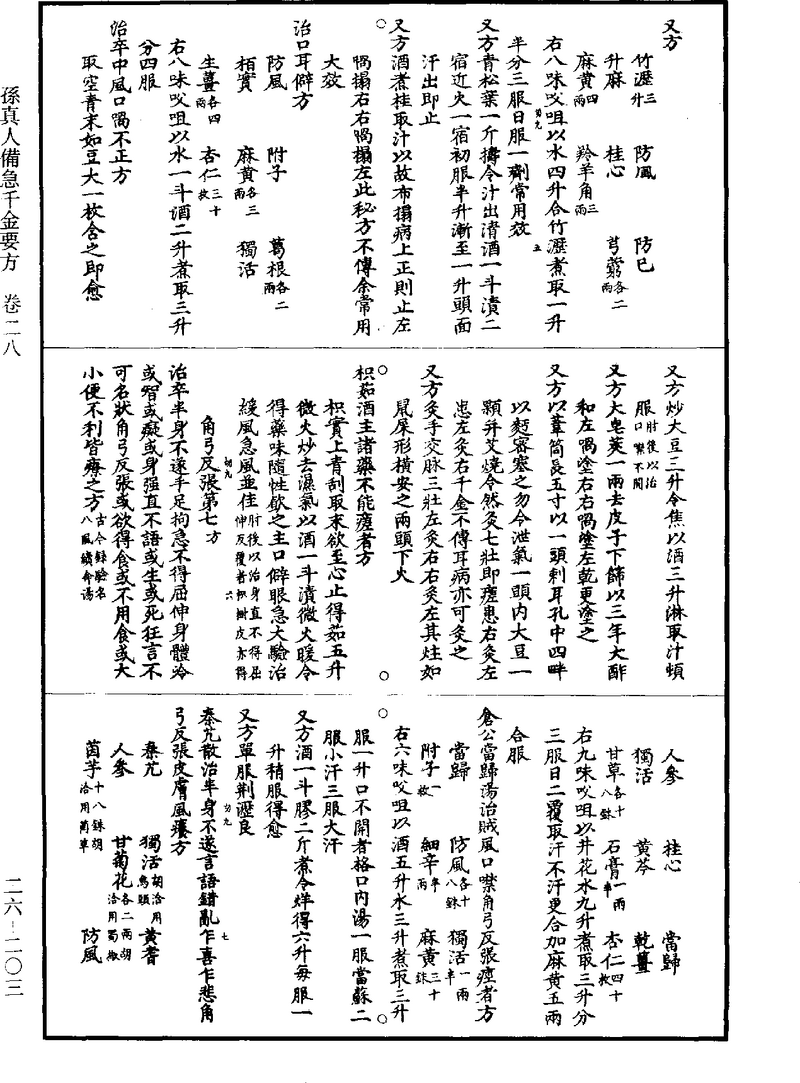 孫真人備急千金要方　卷二八
二六－二〇三
又方
竹瀝三升　防風　防已
升麻　桂心　芎藭各二兩
麻黃四兩　羚羊角三兩
右八味㕮咀以水四升合竹瀝煮取一升
半分三服日服一劑常用效
又方青松葉一斤擣令汁出清酒一斗漬二
宿近火一宿初服半升漸至一升頭面
汗出即止
又方酒煮桂取汁以故布搨病上正則止左
喎搨右右喎搨左此秘方不傳余常用
大效
治口耳僻方
防風　附子　葛根各二兩
栢實　麻黃各三兩　獨活
生薑各四兩　杏仁三十枚
右八味㕮咀以水一斗酒二升煮取三升
分四服
治卒中風口喎不正方
取空青末如豆大一枚含之即愈
又方炒大豆三升令焦以酒三升淋取汁頓
服肘後以治口噤不開
又方大皂莢一兩去皮子下篩以三年大酢
和左喎塗右右喎塗左乾更塗之
又方以葦筒長五寸以一頭刺耳孔中四畔
以麪密塞之勿令泄氣一頭內大豆一
顆并艾燒令然灸七壯即瘥患右灸左
患左灸右千金不傳耳病亦可灸之
又方灸手交脉三壯左灸右右灸左其炷如
鼠屎形橫安之兩頭下火
枳茹酒主諸藥不能瘥者方
枳實上青刮取末欲至心止得茹五升
微火炒去濕氣以酒一斗漬微火暖令
得藥味隨性飲之主口僻眼急大驗治
緩風急風並佳肘後以治身直不得屈伸反覆者枳樹皮亦得
角弓反張第七方
治卒半身不遂手足拘急不得屈伸身體冷
或智或癡或身强直不語或生或死狂言不
可名狀角弓反張或欲得食或不用食或大
小便不利皆療之方古今錄驗名八風續命湯
人參　桂心　當歸
獨活　黃芩　乾薑
甘草各十八銖　石膏一兩半　杏仁四十枚
右九味㕮咀以井花水九升煮取三升分
三服日二覆取汗不汗更合加麻黃五兩
合服
倉公當歸湯治賊風口噤角弓反張痙者方
當歸　防風各十八銖　獨活一兩半
附子一枚　細辛半兩　麻黃三十銖
右六味㕮咀以酒五升水三升煮取三升
服一升口不開者格口內湯一服當蘇二
服小汗三服大汗
又方酒一斗膠二斤煮令烊得六升每服一
升稍服得愈
又方單服荆瀝良
秦艽散治半身不遂言語錯亂乍喜乍悲角
弓反張皮膚風癢方
秦艽　獨活胡洽用烏頭　黃耆
人參　甘菊花各二兩胡洽用蜀椒　防風
茵芋十八銖胡洽用菌草